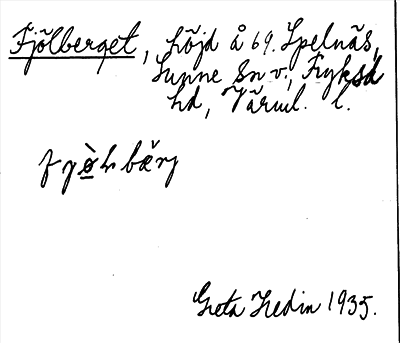 Fjölberget, höjd å 69. Spelnäs,
Sunne sn v., Fryksd
hd, Värml. l.
Greta Hedin 1935.